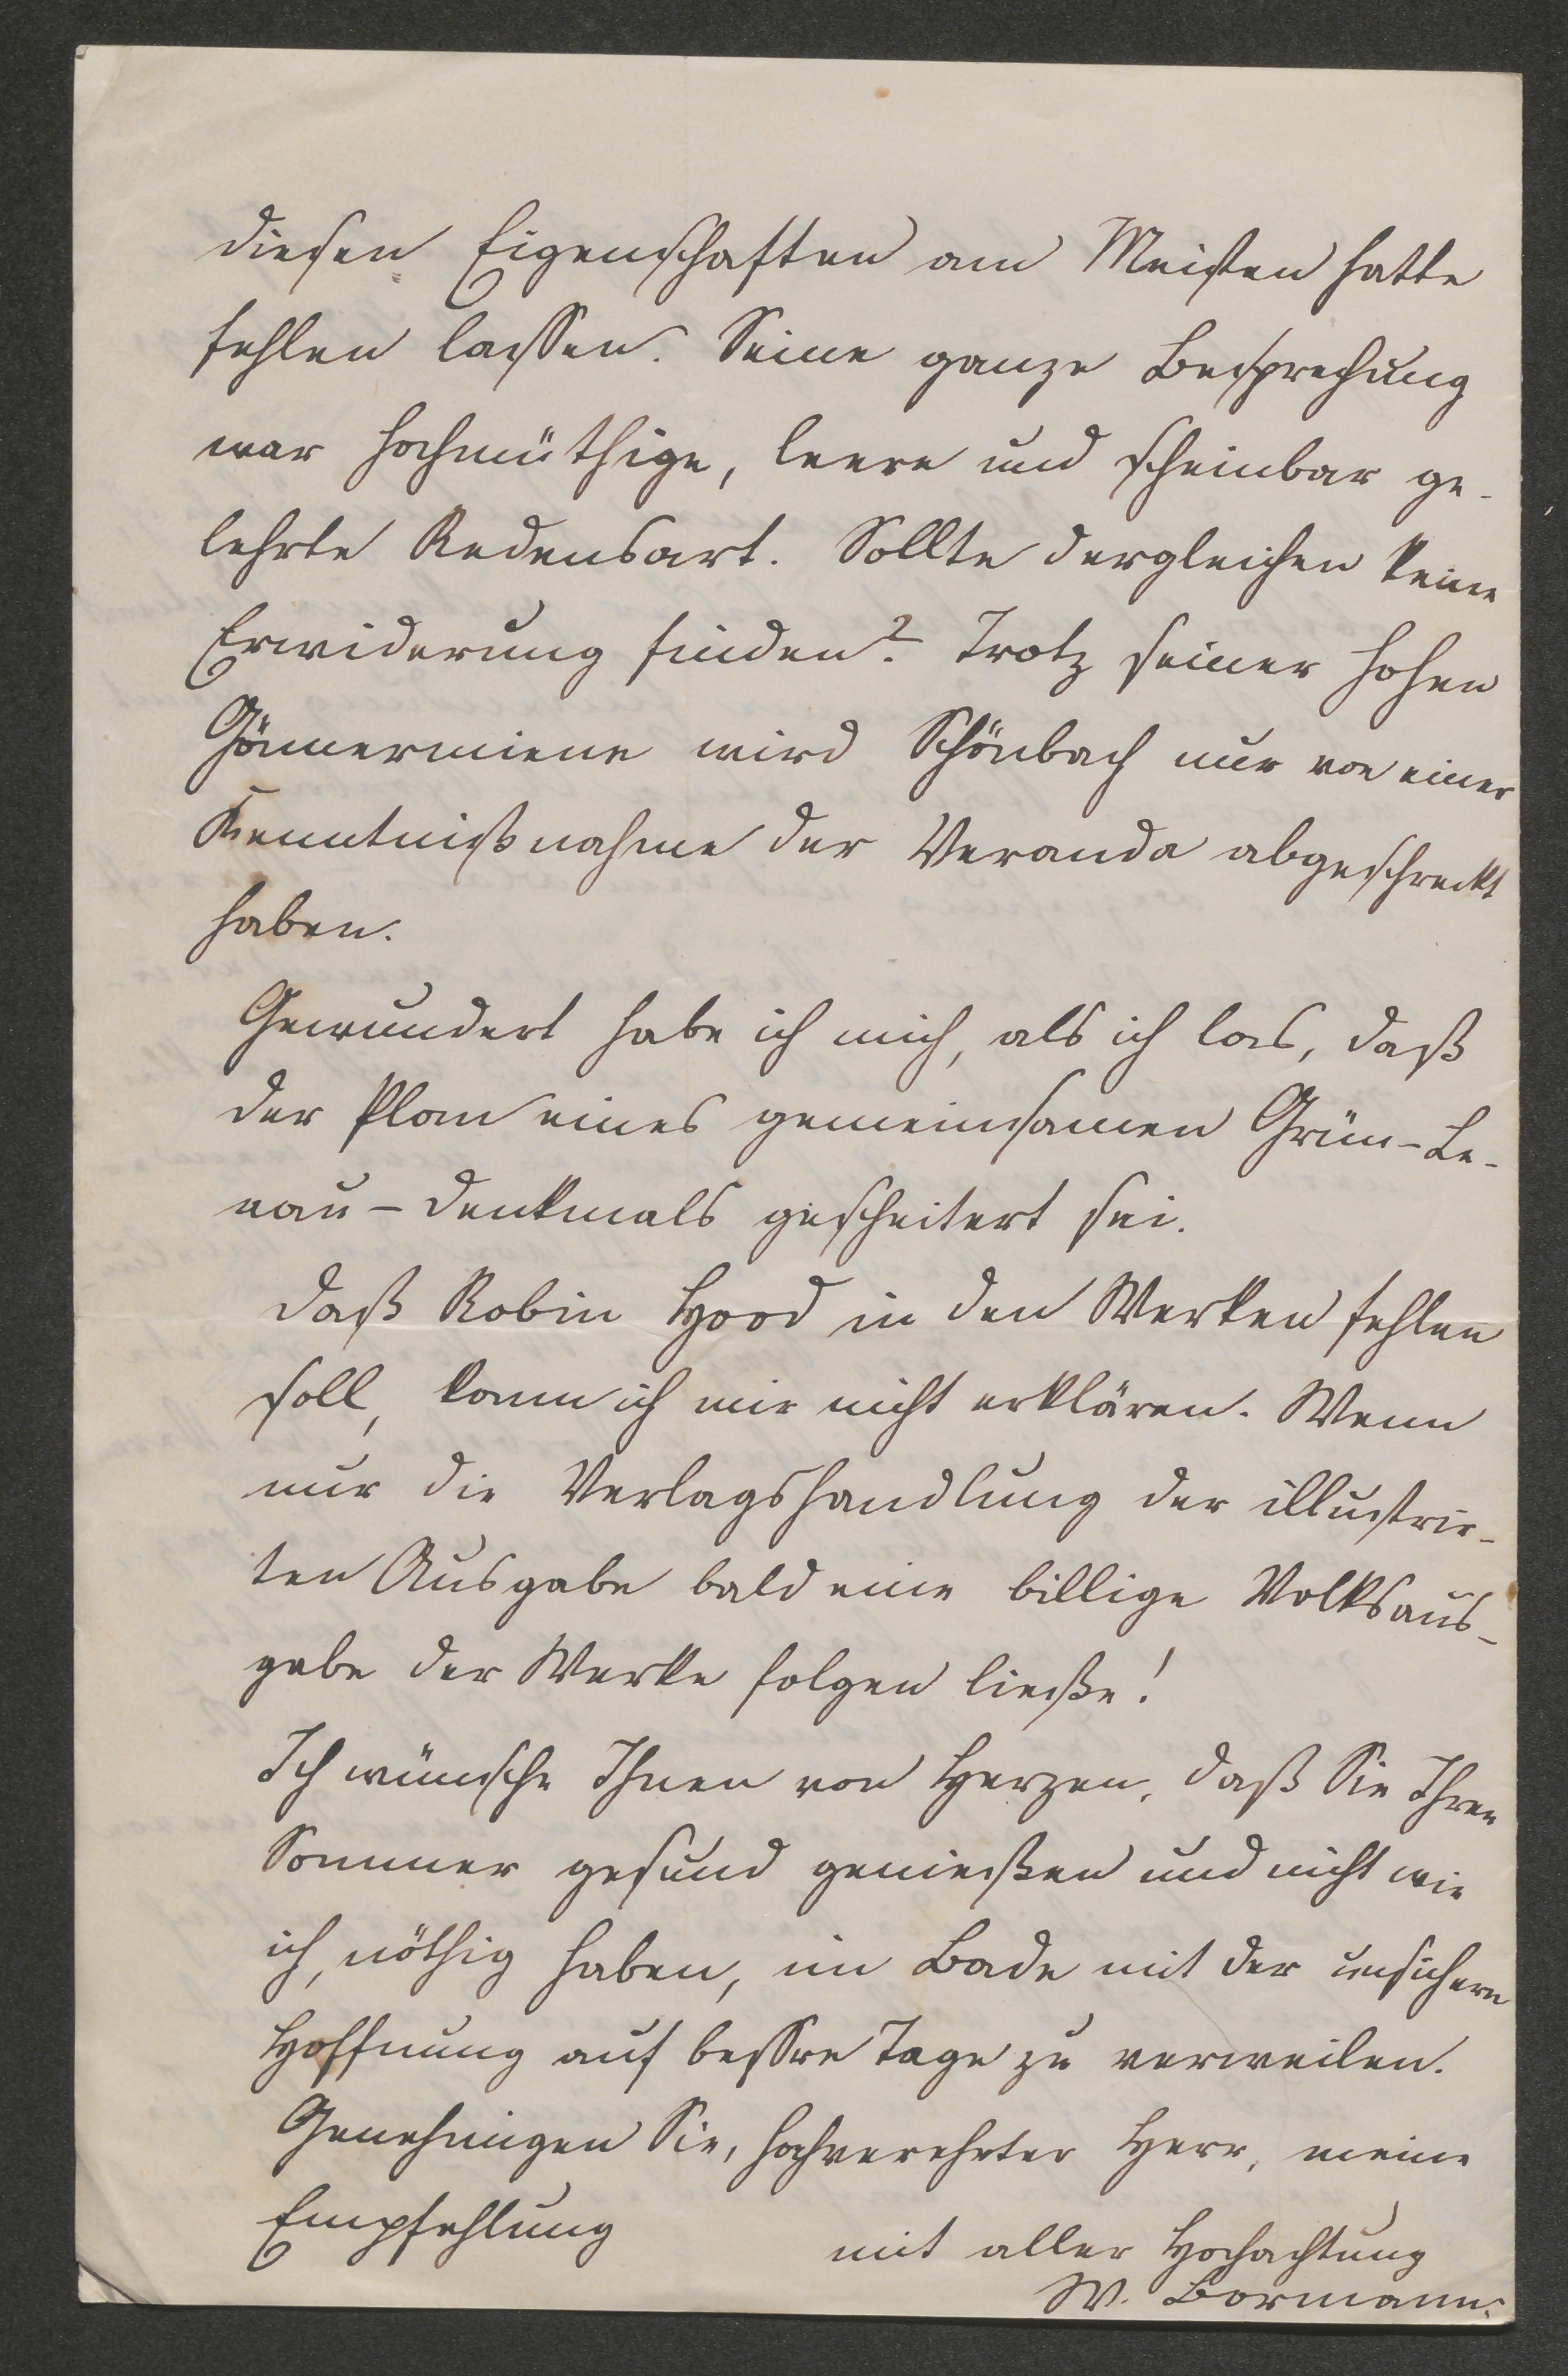 diesen Eigenschaften am Meisten hatte
fehlen lassen. Seine ganze Besprechung
war hochmüthige, leere und scheinbar ge-
lehrte Redensart. Sollte dergleichen keine
Erwiderung finden? Trotz seiner hohen
Gönnermiene wird Schönbach nur von einer
Kenntnißnahme der Veranda abgeschreckt
haben.
Gewundert habe ich mich, als ich las, daß
der Plan eines gemeinsamen Grün-Le-
nau-Denkmals gescheitert sei.
Daß Robin Hood in den Werken fehlen
soll, kann ich mir nicht erklären. Wenn
nur die Verlagshandlung der illustrir-
ten Ausgabe bald eine billige Volksaus-
gabe der Werke folgen ließe!
Ich wünsche Ihnen von Herzen, daß Sie Ihren
Sommer gesund genießen und nicht wie
ich, nöthig haben, im Bade mit der unsichern
Hoffnung auf bessre Tage zu verweilen.
Genehmigen Sie, hochverehrter Herr, meine
Empfehlung
mit aller Hochachtung
W. Bormann.